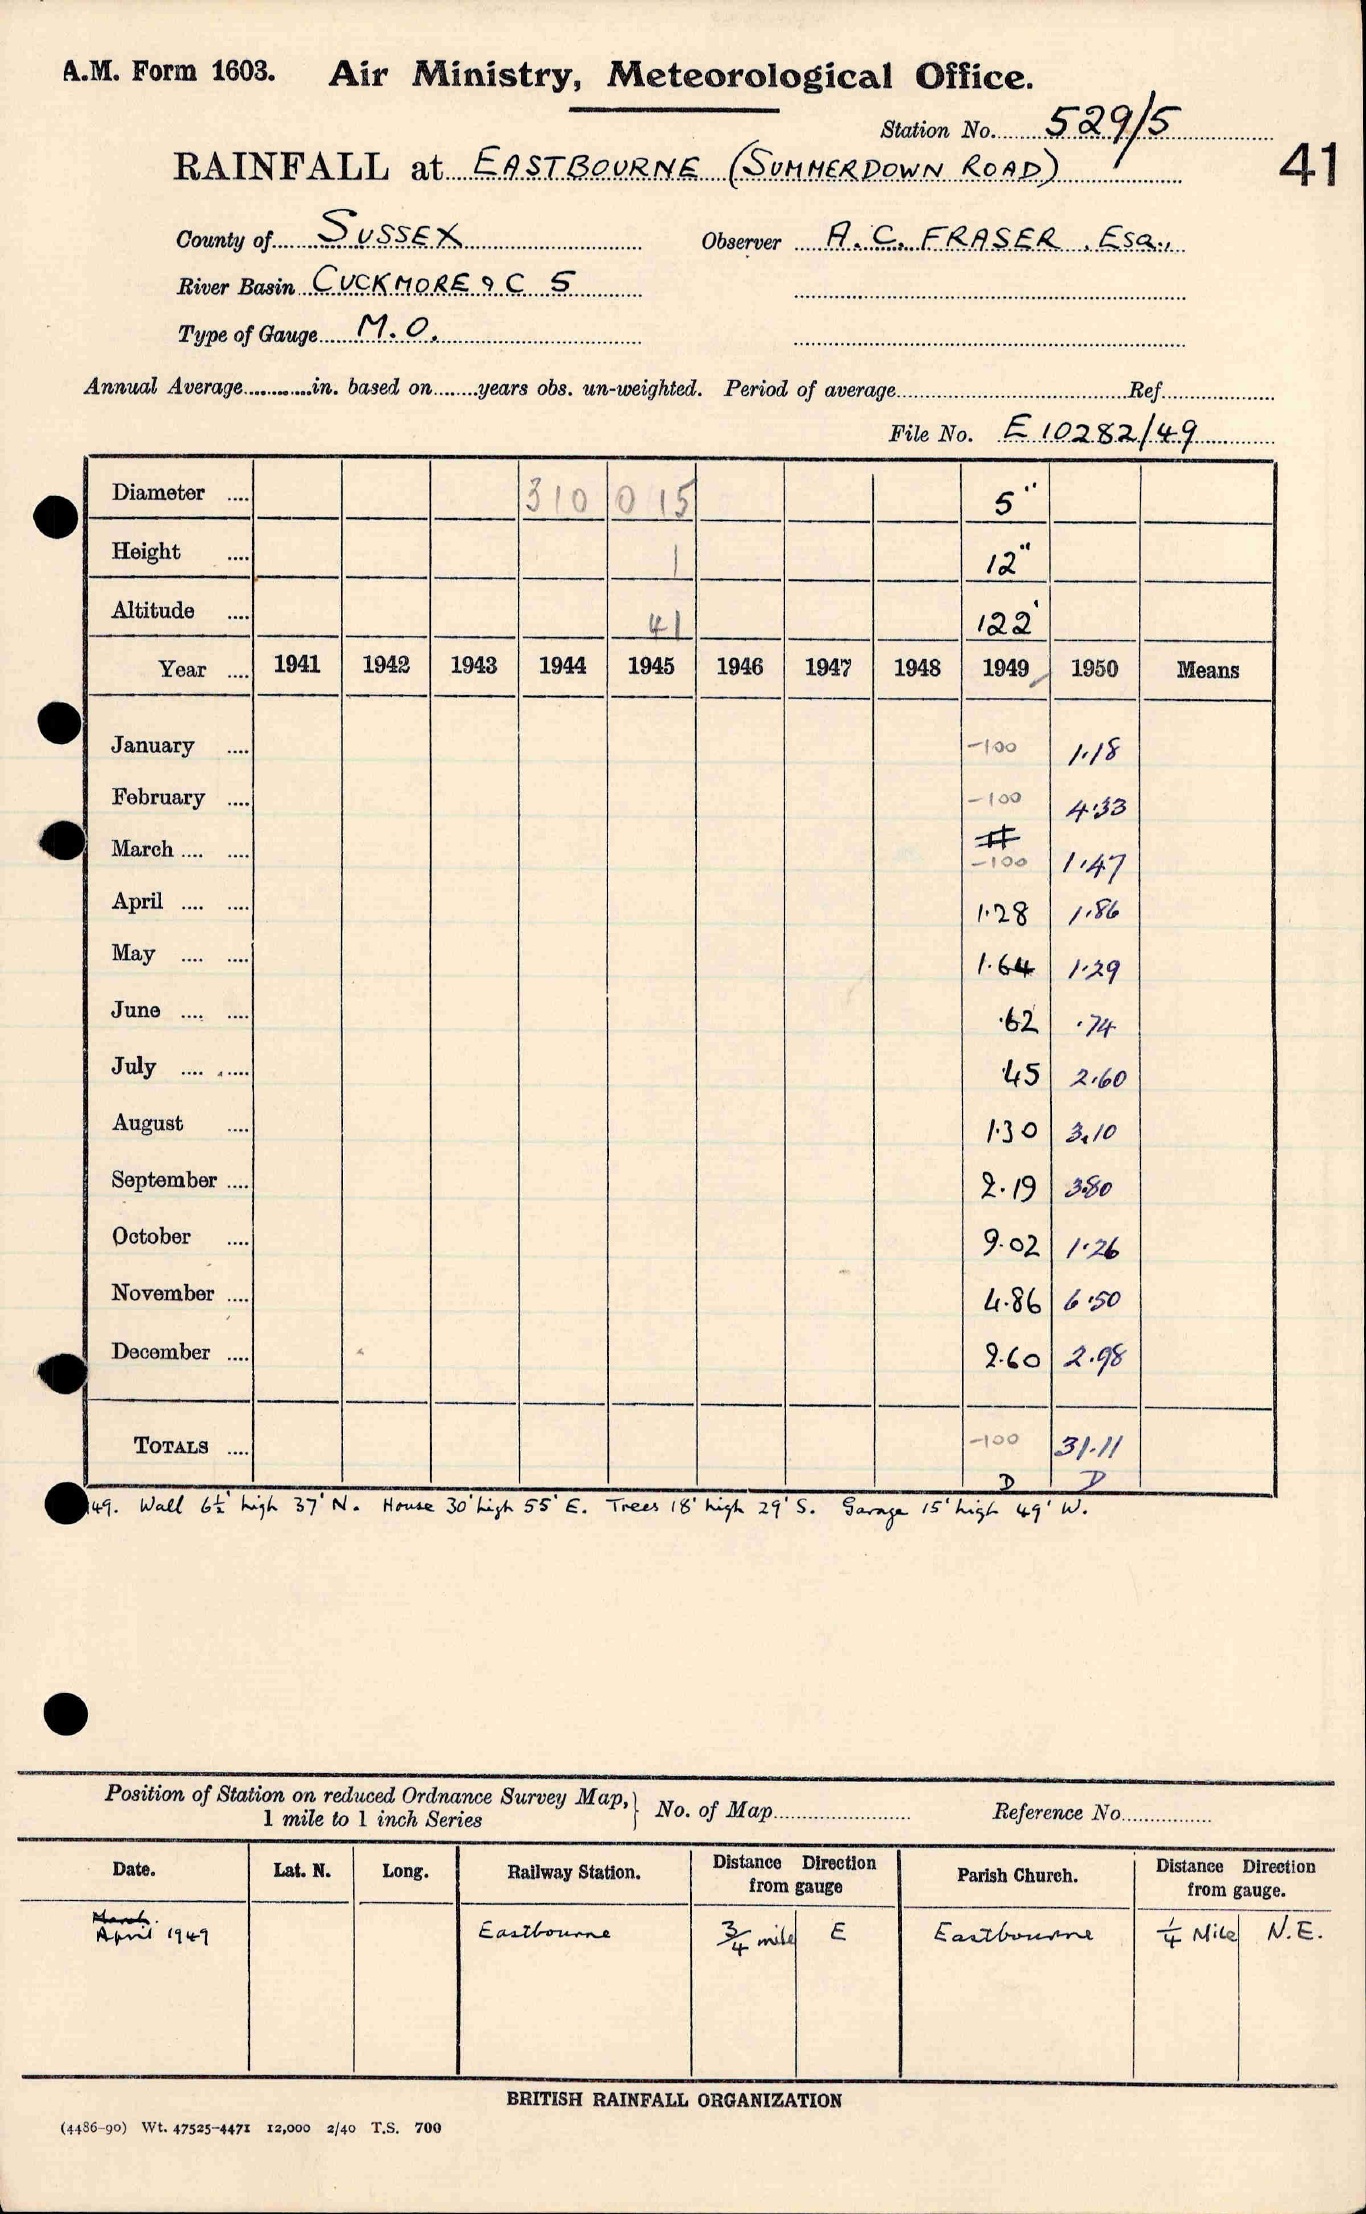 A.M. Form 1603. Air Ministry, Meteorological Office.
Station No. 529/5
41
RAINFALL at EASTBOURNE (SUMMERDOWN ROAD)
County of SUSSEX Observer A.C. FRASER, ESQ.,
River Basin CUCKMORE & C 5
Type of Gauge M.O.
Annual Average in. based on years obs. un-weighted. Period of average Ref.
File No. E 10282/49
Diameter 310 0 15 5"
Height 1 12"
Altitude 41 122'
Year 1941 1942 1943 1944 1945 1946 1947 1948 1949 1950 Means
January -100 1.18
February -100 4.33
March -100 1.47
April 1.28 1.86
May 1.64 1.29
June .62 .74
July .45 2.60
August 1.30 3.10
September 2.19 3.80
October 9.02 1.26
November 4.86 6.50
December 2.60 2.98
TOTALS -100 31.11
D D
49. Wall 6½' high 37' N. House 30' high 55' E. Trees 18' high 29' S. Garage 15' high 49' W.
Position of Station on reduced Ordnance Survey Map, 1 mile to 1 inch Series } No. of Map Reference No.
Date. Lat. N. Long. Railway Station. Distance Direction from gauge Parish Church. Distance Direction from gauge.
March.
April 1949 Eastbourne 3/4 mile E Eastbourne 1/4 Mile N.E.
BRITISH RAINFALL ORGANIZATION
(4486-90) Wt. 47525-4471 12,000 2/40 T.S. 700